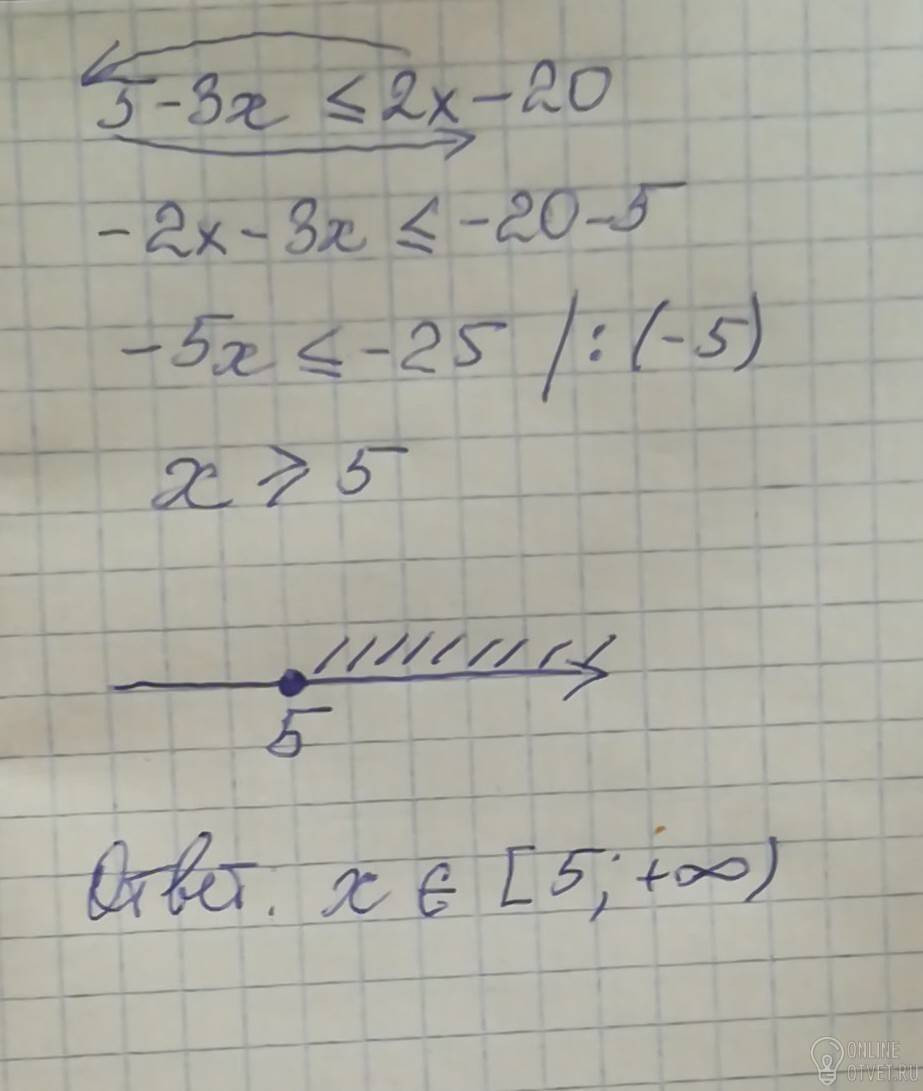 5-3x ≤ 2x-20
-2x-3x ≤ -20-5
-5x ≤ -25 /:(-5)
x ⩾ 5
5
Ответ: x ∈ [5; +∞)
ONLINE
OTVET.RU